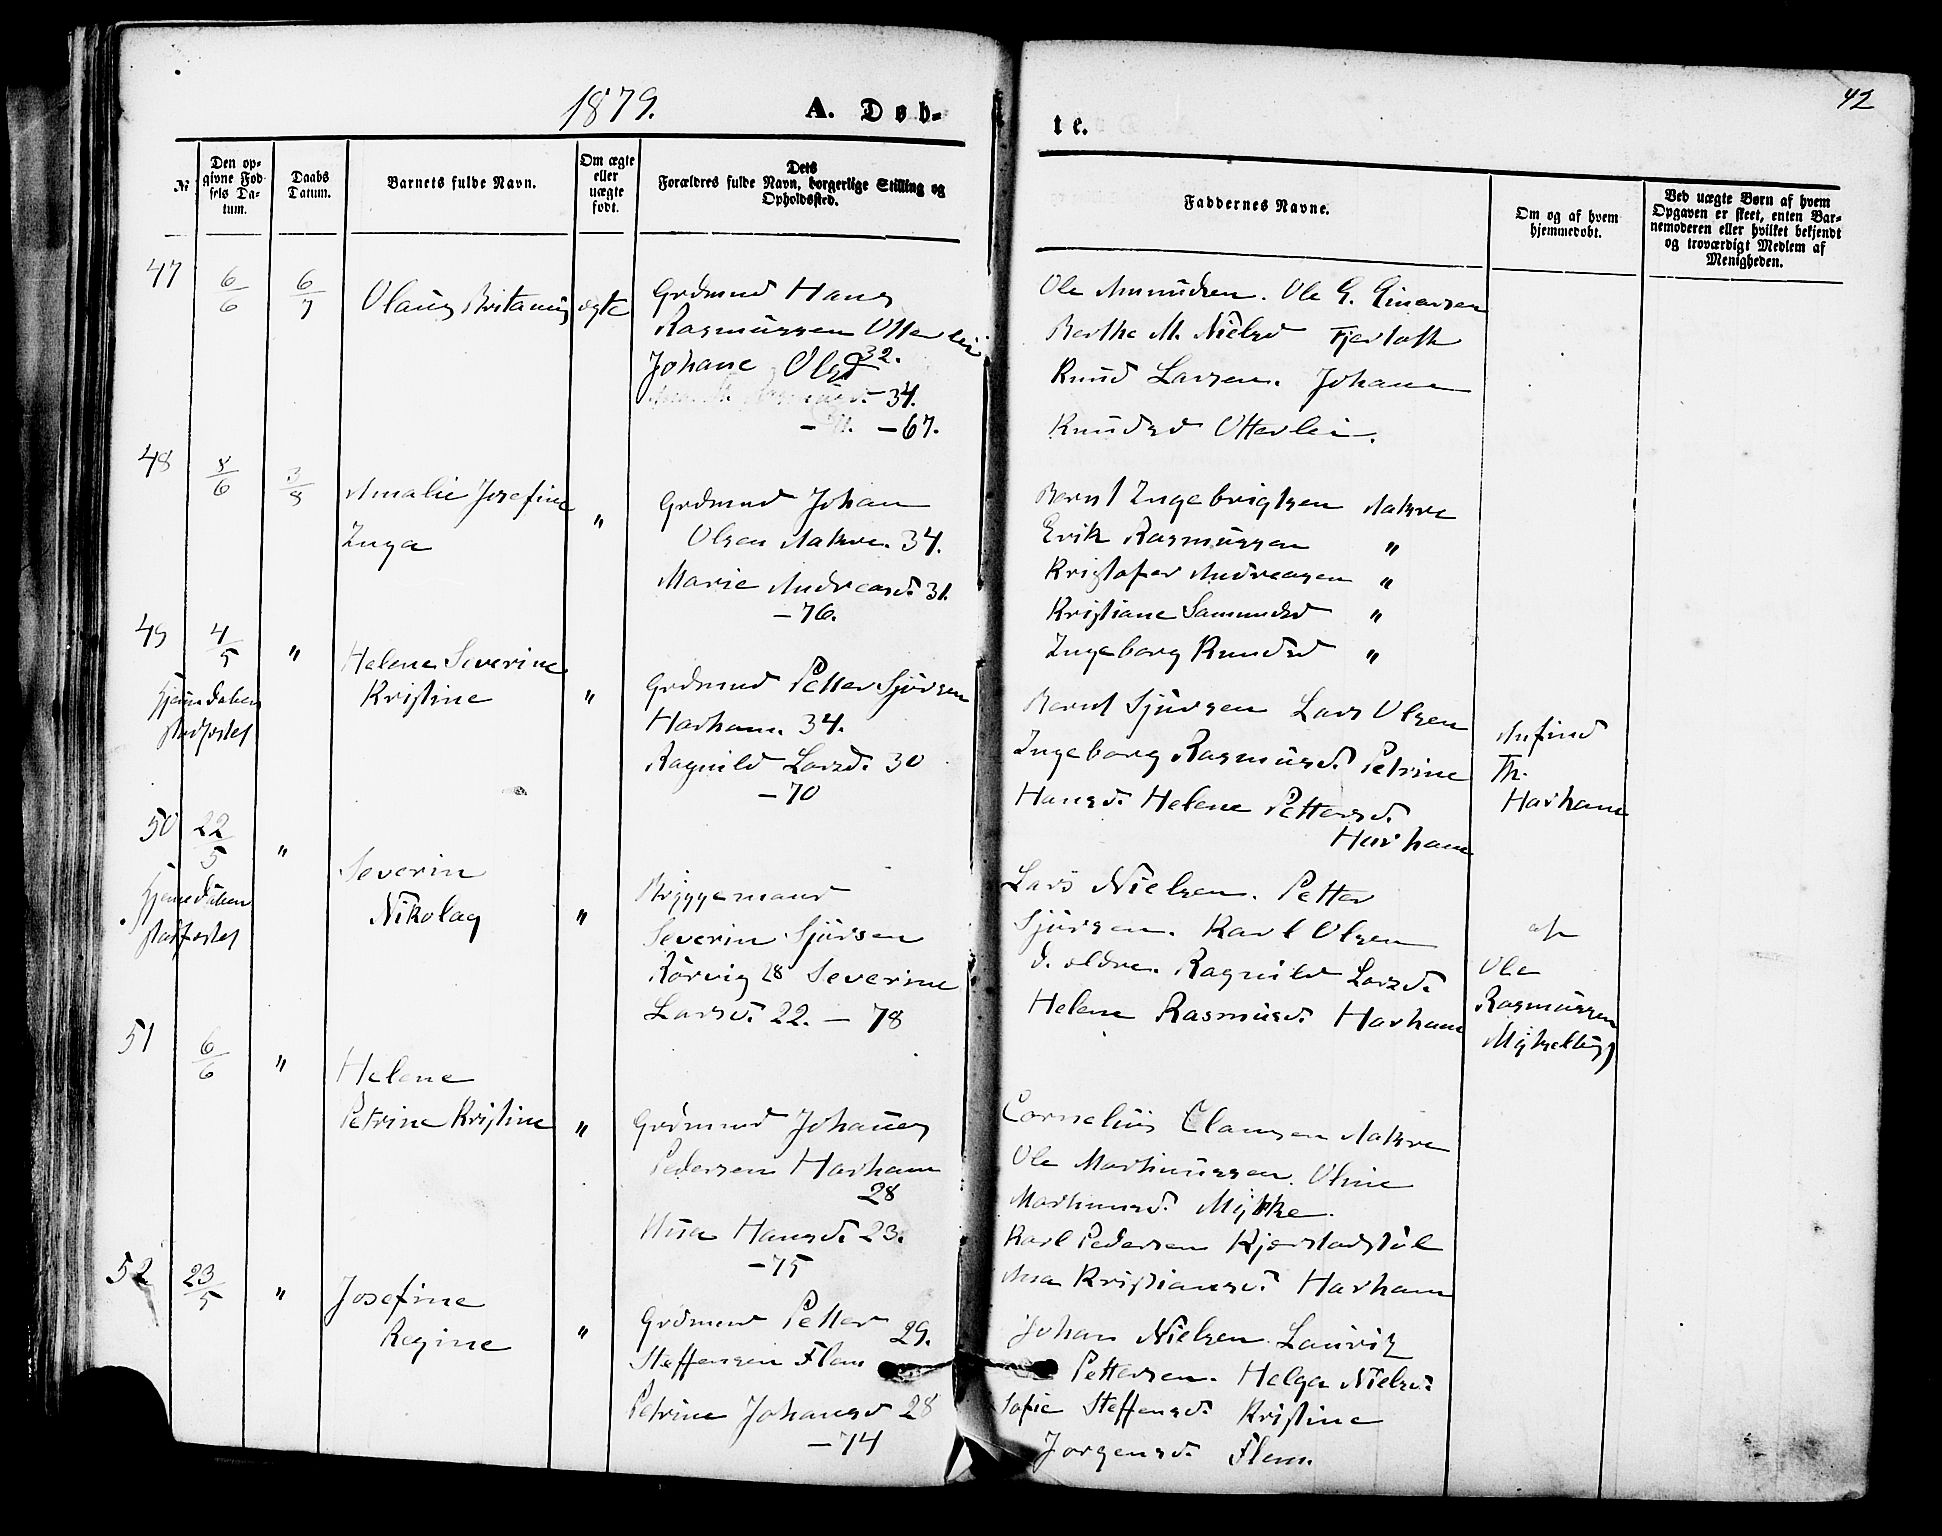 1879.
A. Døb-
te.
42
№
Den op-
givne Fød-
sels Da-
tum.
Daabs
Datum.
Barnets fulde Navn.
Om ægte
eller
uægte
født.
Dets
Forældres fulde Navn, borgerlige Stilling og
Opholdssted.
Faddernes Navne.
Om og af hvem
hjemmedøbt.
Ved uægte Børn af hvem
Opgaven er skeet, enten Bar-
nemoderen eller hvilket bekjendt
og troværdigt Medlem af
Menigheden.
47
6/6
6/7
Olaus Britanius
ægte
Grdmnd Hans
Rasmussen Otterlei
32.
Johane Olsd
34.
-67.
Ole Amundsen. Ole G. Einarsen
Berthe M. Nielsd Fjertoft
Knud Larsen. Johane
Knudsd Otterlei.
48
8/6
3/8
Amalie Josefine
Inga
"
Grdmnd Johan
Olsen Aakre. 34.
Marie Andreasd. 31.
-76.
Bernt Ingebrigtsen Aakre
Erik Rasmussen "
Kristofer Andreasen "
Kristiane Samundsd "
Ingeborg Knudsd "
49
4/5
"
Hjemdaaben
stadfæstet
Helene Severine
Kristine
"
Grdmnd Petter Sjursen
Harham. 34.
Ragnild Larsd. 30
-70
Bernt Sjursen Lars Olsen
Ingeborg Rasmusd. Petrine
Hansd. Helene Pettersd.
Harham
Anfind
Th.
Harham
50
22/5
"
Hjemdaaben
stadfæstet
Severin
Nikolay
"
Byggemand
Severin Sjursen
Rørvig 28 Severine
Larsd. 22. - 78
Lars Nielsen. Petter
Sjursen. Karl Olsen
d. ældre. Ragnild Larsd.
Helene Rasmusd. Harham
af
Ole
Rasmussen
Myklebust
51
6/6
"
Helene
Petrine Kristine
"
Grdmnd Johannes
Pedersen Harham
28
Hansd. 23.
-75
Cornelius Clausen Aakre
Ole Martinussen. Oline
Martinusd. Mykke.
Karl Pedersen Kjerstadstøl
Ana Kristiansd. Harham
52
23/5
"
Josefine
Regine
"
Grdmnd Petter
29.
Steffensen Flem
Petrine Johansd 28
-74
Johan Nielsen. Laurits
Pettersen. Helga Nielsd.
Sofie Steffensd. Kristine
Jorgensd. Flem.